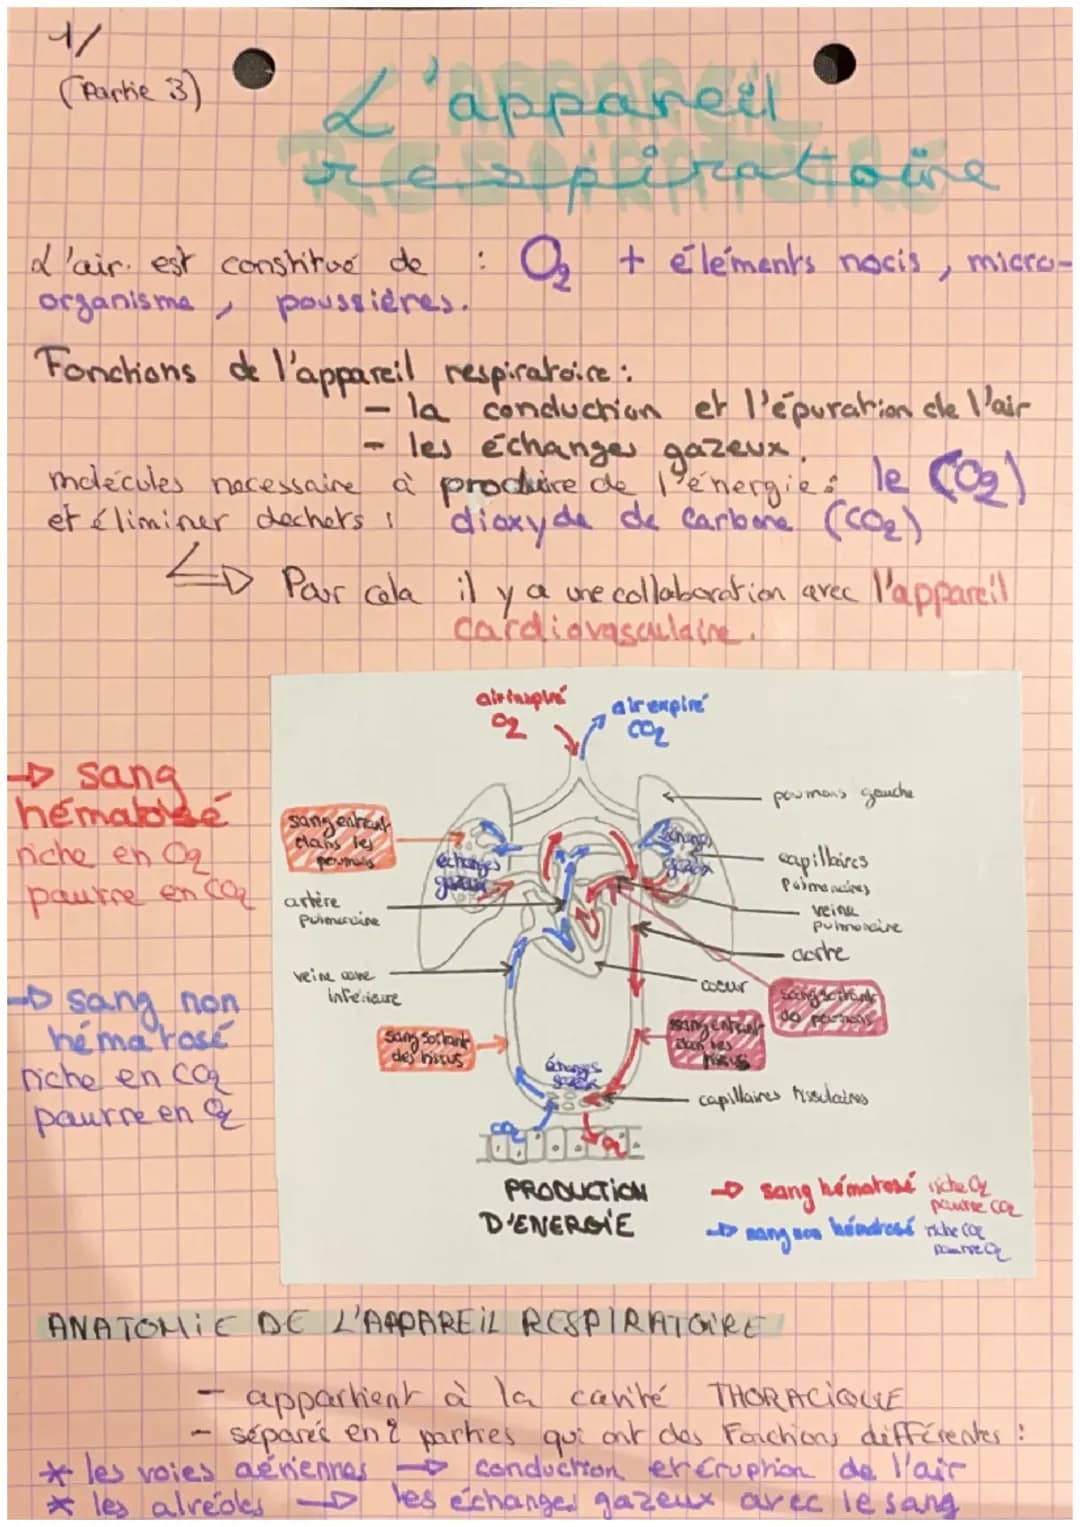 1/
(Partie 3)
L'appareil
respiratoire
L'air est constitué de : O2 + éléments nocis, micro-
organisme, poussières.
Fonctions de l'appareil respiratoire :
- la conduction et l'épuration de l'air
- les échanges gazeux.
molécules necessaire à produire de l'énergie : le (O2)
et éliminer dechets : dioxyde de carbone (CO2)
Pour cela il y a une collaboration avec l'appareil
cardiovasculaire.
air inspiré
O2
air expiré
CO2
→ sang
hématosé
riche en O2
pauvre en CO2
→ sang non
hématosé
riche en CO2
pauvre en O2
poumons gauche
sang entrant
dans les
poumons
échanges
gazeux
échanges
gazeux
capillaires
Pulmonaires
artère
pulmonaire
veine
pulmonaire
aorte
veine cave
inférieure
coeur
sang sortant
des poumons
sang sortant
des tissus
sang entrant
dans les
tissus
échanges
gazeux
capillaires tissulaires
CO2
O2
PRODUCTION
D'ENERGIE
→ sang hématosé riche O2
pauvre CO2
→ sang non hématosé riche CO2
pauvre O2
ANATOMIE DE L'APPAREIL RESPIRATOIRE
- appartient à la cavité THORACIQUE
- séparés en 2 parties qui ont des Fonctions différentes :
* les voies aériennes → conduction et éruption de l'air
* les alvéoles → les échanges gazeux avec le sang